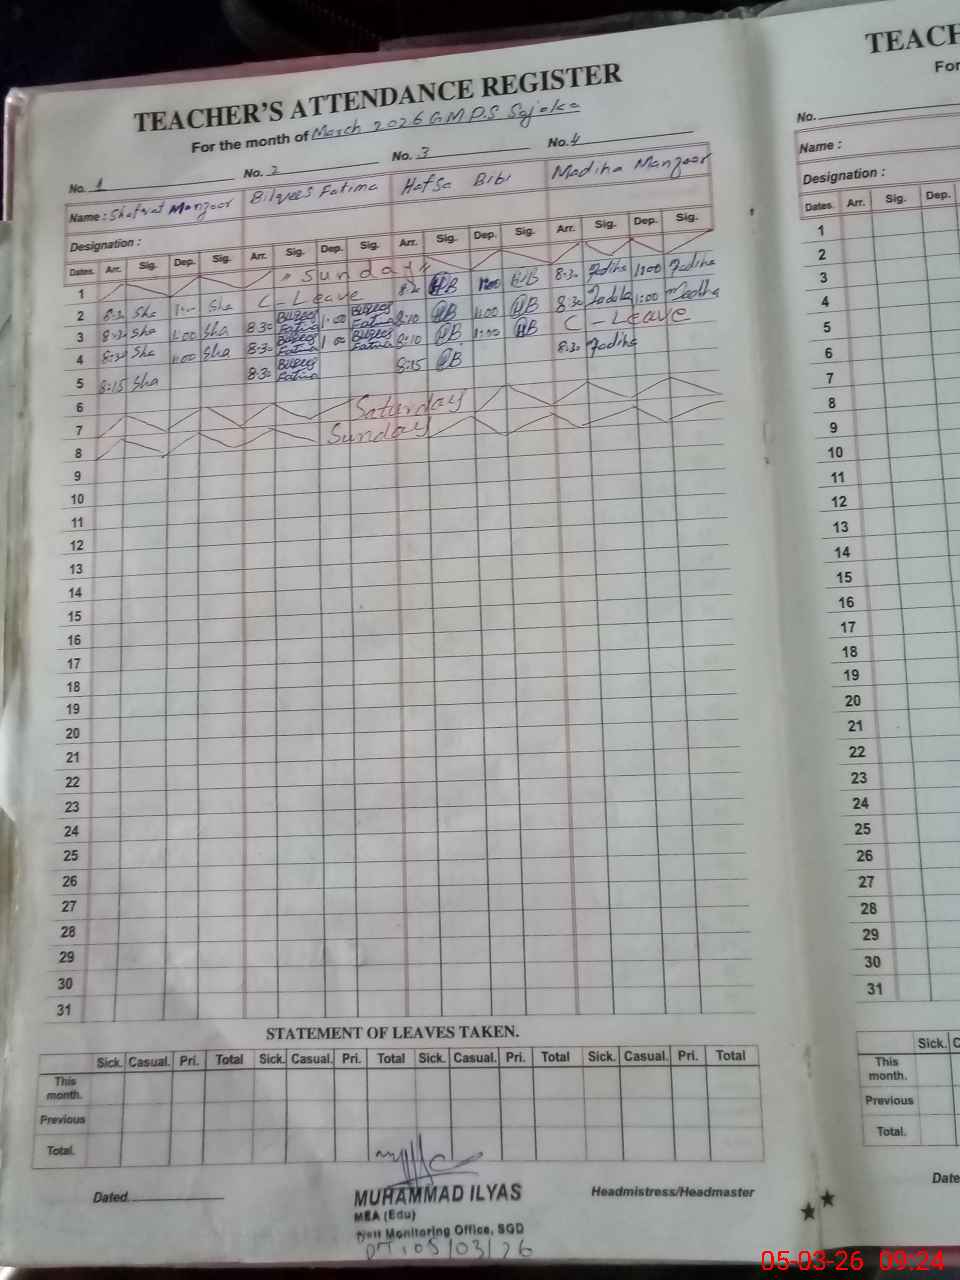 TEACHER'S ATTENDANCE REGISTER
For the month of March 2026 G.M.P.S Sajoka
No. 1 No. 2 No. 3 No. 4
Name : Shafqat Manzoor Bilqees Fatima Hafsa Bibi Madiha Manzoor
Designation :
Dates. Arr. Sig. Dep. Sig. Arr. Sig. Dep. Sig. Arr. Sig. Dep. Sig. Arr. Sig. Dep. Sig.
1 Sunday
2 8:30 Sha 1:00 Sha C-Leave 8:20 HB 1:00 HB 8:30 Madiha 1:00 Madiha
3 8:30 Sha 1:00 Sha 8:30 Bilqees Fatima 1:00 Bilqees Fatima 8:10 HB 1:00 HB 8:30 Madiha 1:00 Madiha
4 8:30 Sha 1:00 Sha 8:30 Bilqees Fatima 1:00 Bilqees Fatima 8:10 HB 1:00 HB C-Leave
5 8:15 Sha 8:30 Bilqees Fatima 8:15 HB 8:30 Madiha
6
7 Saturday
8 Sunday
9
10
11
12
13
14
15
16
17
18
19
20
21
22
23
24
25
26
27
28
29
30
31
STATEMENT OF LEAVES TAKEN.
Sick. Casual. Pri. Total Sick. Casual. Pri. Total Sick. Casual. Pri. Total Sick. Casual. Pri. Total
This month.
Previous
Total.
Dated.
MUHAMMAD ILYAS
MEA (Edu)
Distt Monitoring Office, SGD
DT: 05/03/26
Headmistress/Headmaster
TEACH
For
No.
Name :
Designation :
Dates. Arr. Sig. Dep.
1
2
3
4
5
6
7
8
9
10
11
12
13
14
15
16
17
18
19
20
21
22
23
24
25
26
27
28
29
30
31
Sick. C
This month.
Previous
Total.
Date
05-03-26 09:24